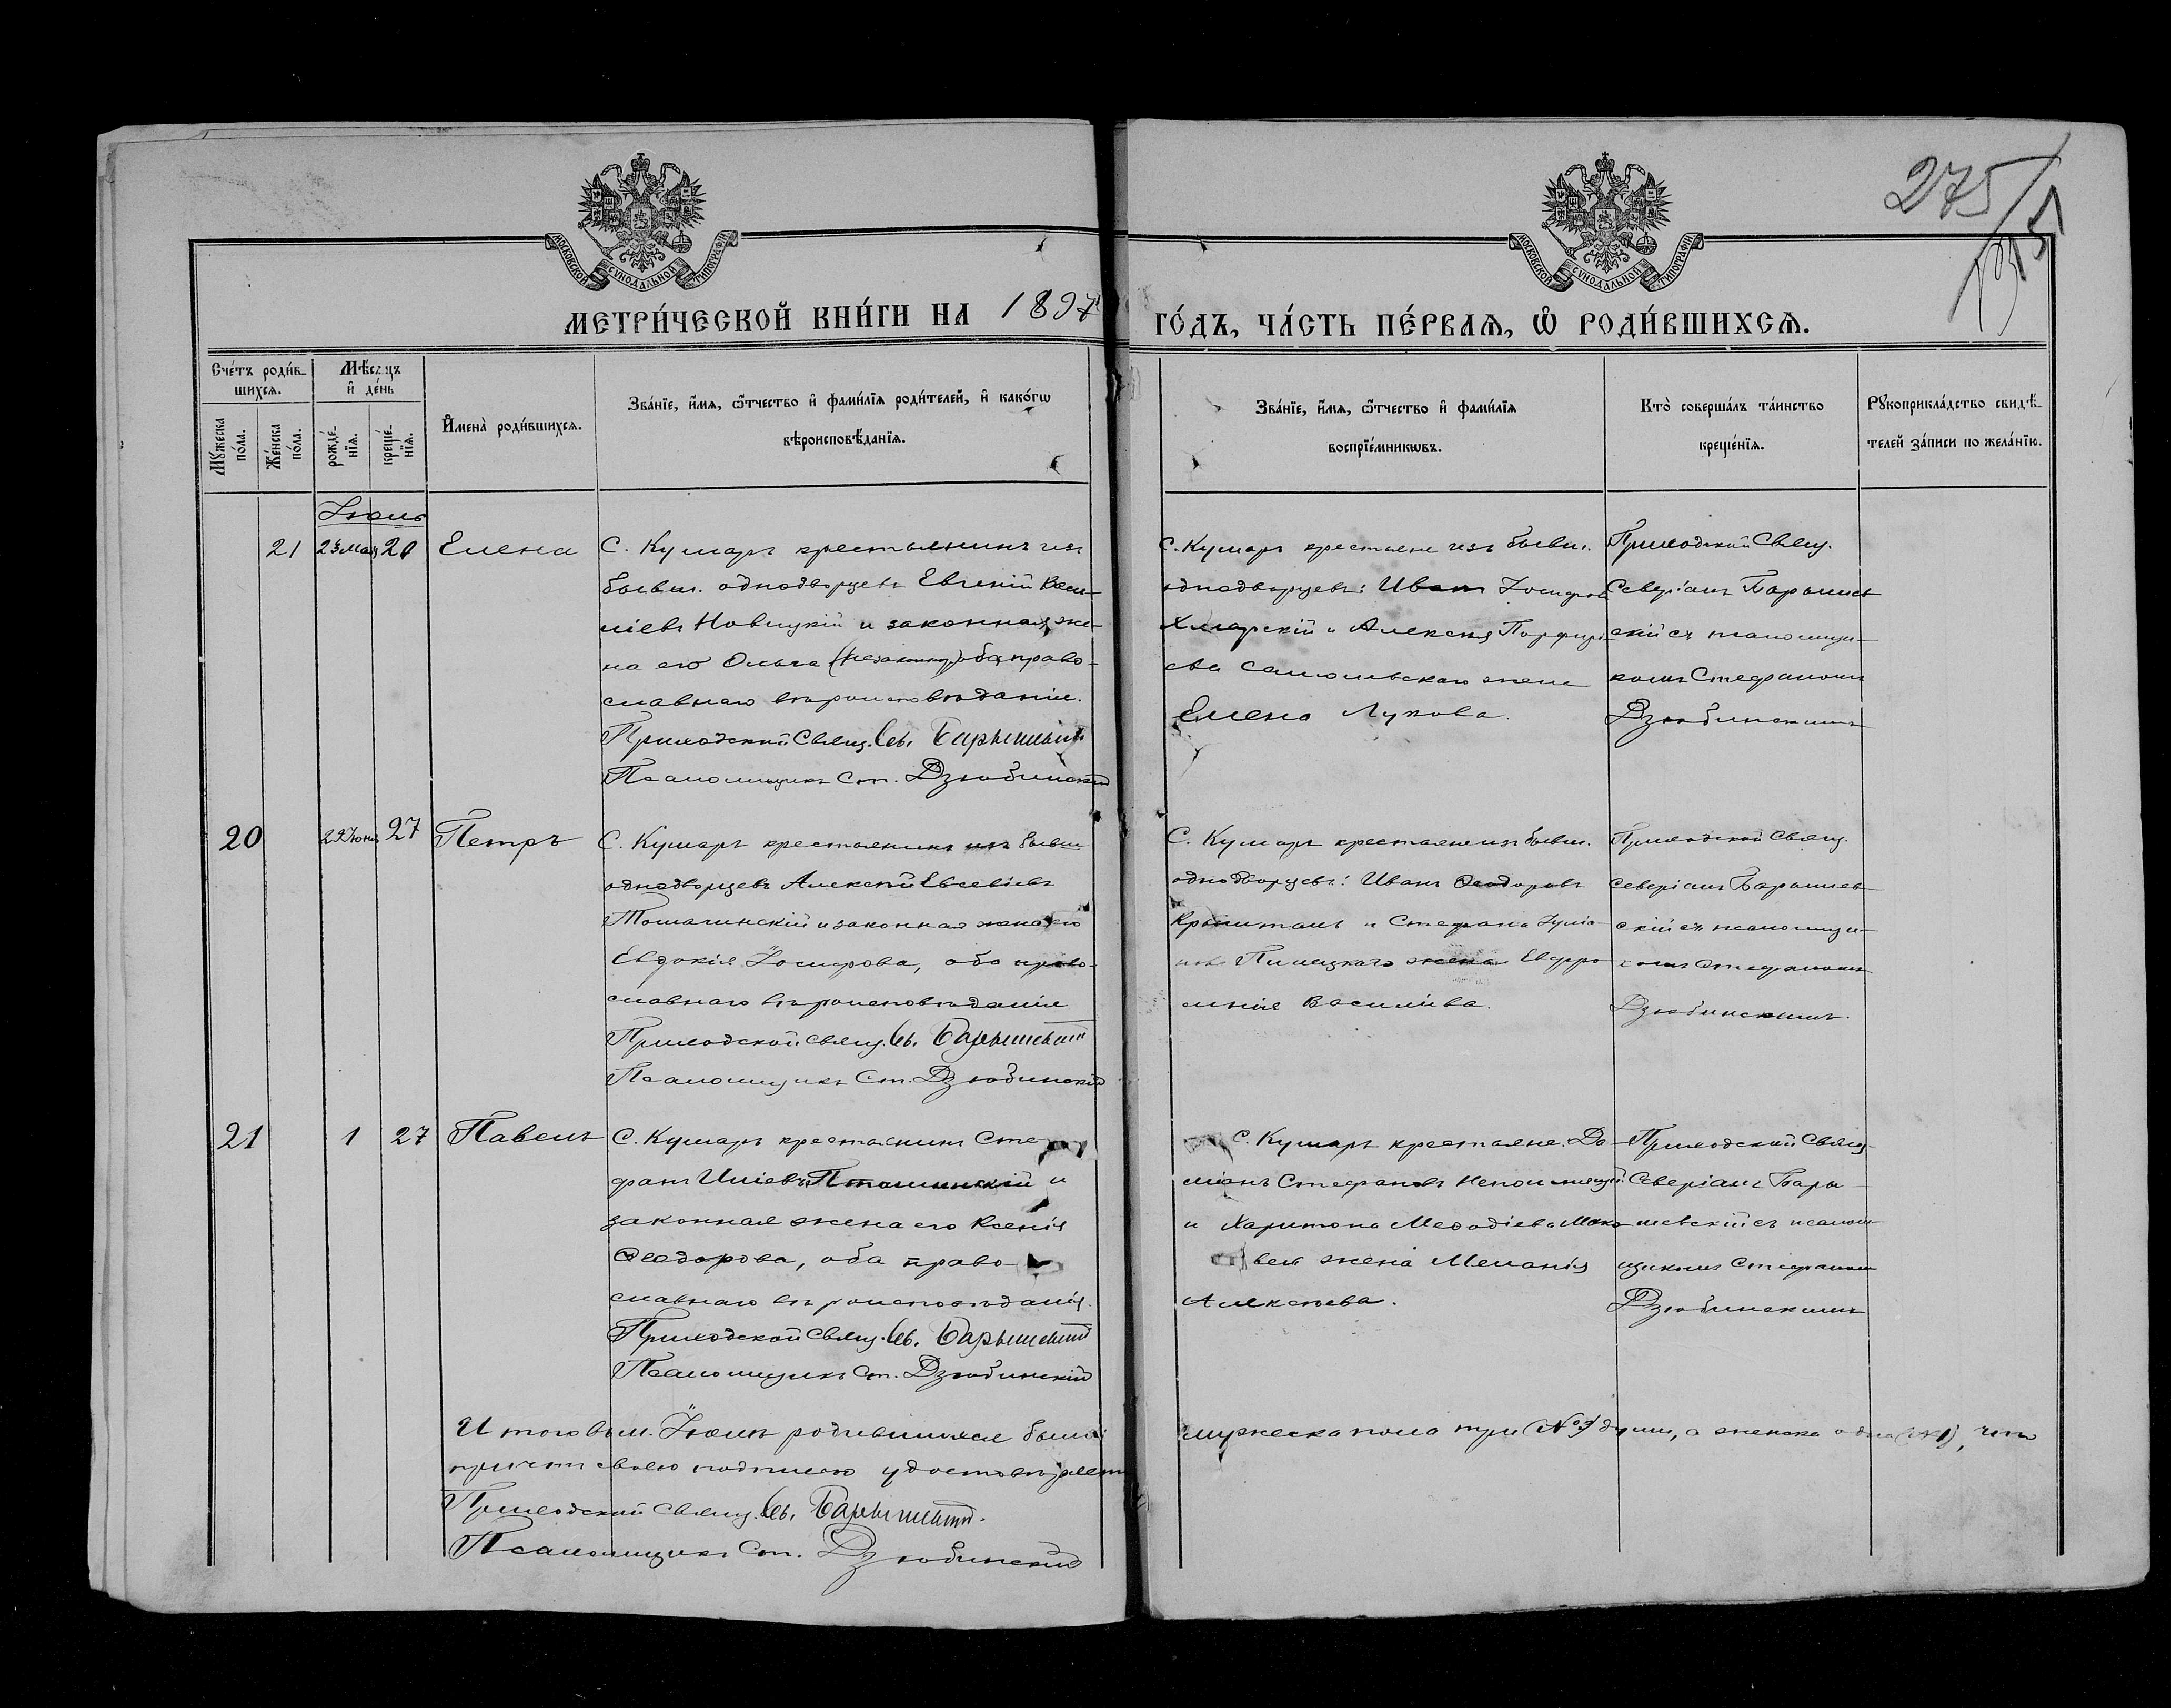 275
135
МОСКОВСКОЙ СУНОДАЛЬНОЙ ТИПОГРАФІИ
МОСКОВСКОЙ СУНОДАЛЬНОЙ ТИПОГРАФІИ
МЕТРИ́ЧЕСКОЙ КНИ́ГИ НА 1897
ГО́ДЪ, ЧА́СТЬ ПЕ́РВАѦ, Ѡ҆ РОДИ́ВШИХСѦ.
Сче́тъ роди́в-
шихсѧ.
Мꙋжеска по́ла.
Же́нска по́ла.
Мѣ́сѧцъ
и҆ де́нь
рожде́-
нїѧ.
креще́-
нїѧ.
И҆мена̀ роди́вшихсѧ.
Зва́нїе, и҆́мѧ, ѻ҆́тчество и҆ фами́лїѧ роди́телей, и҆ како́гѡ
вѣроисповѣ́данїѧ.
Зва́нїе, и҆́мѧ, ѻ҆́тчество и҆ фами́лїѧ
воспрїе́мникѡвъ.
Кто̀ соверша́лъ та́инство
креще́нїѧ.
Рꙋкоприкла́дство свидѣ́-
телей за́писи по жела́нїю.
Іюль
21 23 Мая 20 Елена
С. Кушаръ крестьянинъ изъ
бывш. однодворцевъ Евгеній Васи-
ліевъ Новицкій и законная же-
на его Ольга оба право-
славнаго вѣроисповѣданія.
Приходской Свящ. Сев. Барышевскій
Псаломщикъ Ст. Дзюбинскій
С. Кушаръ крестьяне изъ бывш.
однодворцевъ: Иванъ Іосифовъ
и Алексія Порфирі-
ева жена
Елена Лукова.
Приходской Свящ.
Северіанъ Барышев-
скій съ псаломщи-
комъ Стефаномъ
Дзюбинскимъ
20 22 Іюня 27 Петръ
С. Кушаръ крестьянинъ изъ бывш
однодворцевъ Алексѣй Евсевіевъ
Томашинскій и законная жена его
Евдокія Іосифова, оба право-
славнаго вѣроисповѣданія
Приходской Свящ. Сев. Барышевскій
Псаломщикъ Ст. Дзюбинскій
С. Кушаръ крестьяне изъ бывш.
однодворцевъ: Иванъ Ѳеодоровъ
и Стефана Іулiа-
нова жена Евфро-
синія Василіева.
Приходской Свящ.
Северіанъ Барышев-
скій съ псаломщи-
комъ Стефаномъ
Дзюбинскимъ.
21 1 27 Павелъ
С. Кушаръ крестьянинъ Сте-
фанъ Иліевъ Пташинскій и
законная жена его Ксенія
Ѳеодорова, оба право-
славнаго вѣроисповѣданія.
Приходской Свящ. Сев. Барышевскій
Псаломщикъ Ст. Дзюбинскій
С. Кушаръ крестьяне: Да-
міанъ Стефановъ Непомнящій
и Харитона Меѳодіева
жена Меланія
Алексѣева.
Приходской Свящ.
Северіанъ Бары-
шевскій съ псалом-
щикомъ Стефаномъ
Дзюбинскимъ
Итого въ м. Іюлѣ родившихся было мужеска пола три (№3) души, а женска одна (№1), что
причтъ своею подписью удостовѣряетъ
Приходской Свящ. Сев. Барышевскій.
Псаломщикъ Ст. Дзюбинскій